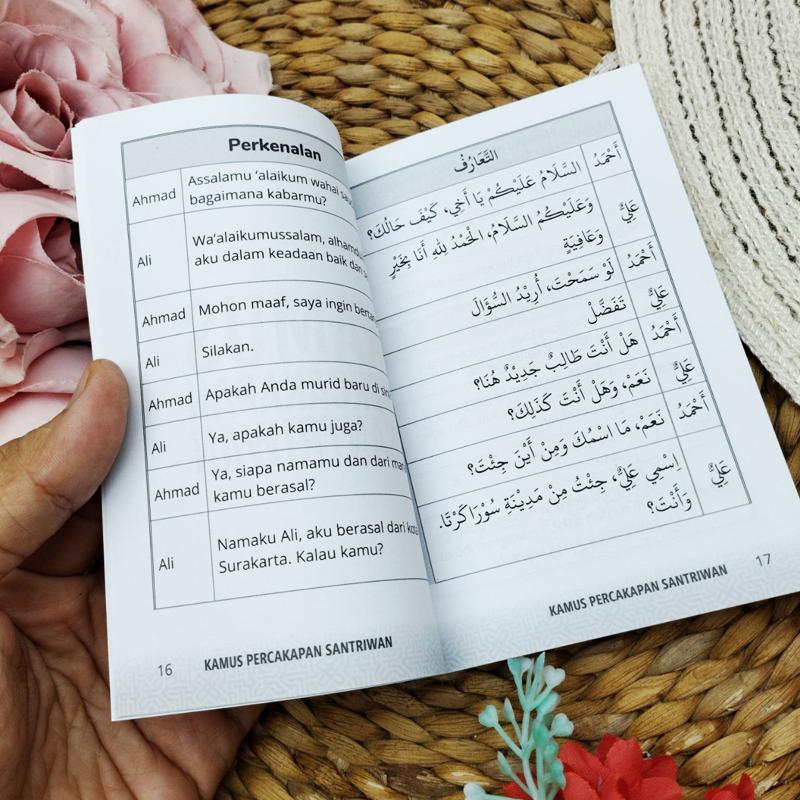 Perkenalan
Ahmad
Assalamu ‘alaikum wahai
bagaimana kabarmu?
Ali
Wa‘alaikumussalam,
aku dalam keadaan baik dan
Ahmad
Mohon maaf, saya ingin
Ali
Silakan.
Ahmad
Apakah Anda murid baru di
Ali
Ya, apakah kamu juga?
Ahmad
Ya, siapa namamu dan dari
kamu berasal?
Ali
Namaku Ali, aku berasal dari
Surakarta. Kalau kamu?
16
KAMUS PERCAKAPAN SANTRIWAN
التَّعَارُفُ
أَحْمَدُ
السَّلَامُ عَلَيْكُمْ يَا أَخِي، كَيْفَ حَالُكَ؟
عَلِيٌّ
وَعَلَيْكُمُ السَّلَامُ، الْحَمْدُ لِلّٰهِ أَنَا بِخَيْرٍ
وَعَافِيَةٍ
أَحْمَدُ
لَوْ سَمَحْتَ، أُرِيْدُ السُّؤَالَ
عَلِيٌّ
تَفَضَّلْ
أَحْمَدُ
هَلْ أَنْتَ طَالِبٌ جَدِيْدٌ هُنَا؟
عَلِيٌّ
نَعَمْ، وَهَلْ أَنْتَ كَذَلِكَ؟
أَحْمَدُ
نَعَمْ، مَا اسْمُكَ وَمِنْ أَيْنَ جِئْتَ؟
عَلِيٌّ
اِسْمِي عَلِيٌّ، جِئْتُ مِنْ مَدِيْنَةِ سُوْرَاكَرْتَا.
وَأَنْتَ؟
KAMUS PERCAKAPAN SANTRIWAN
17